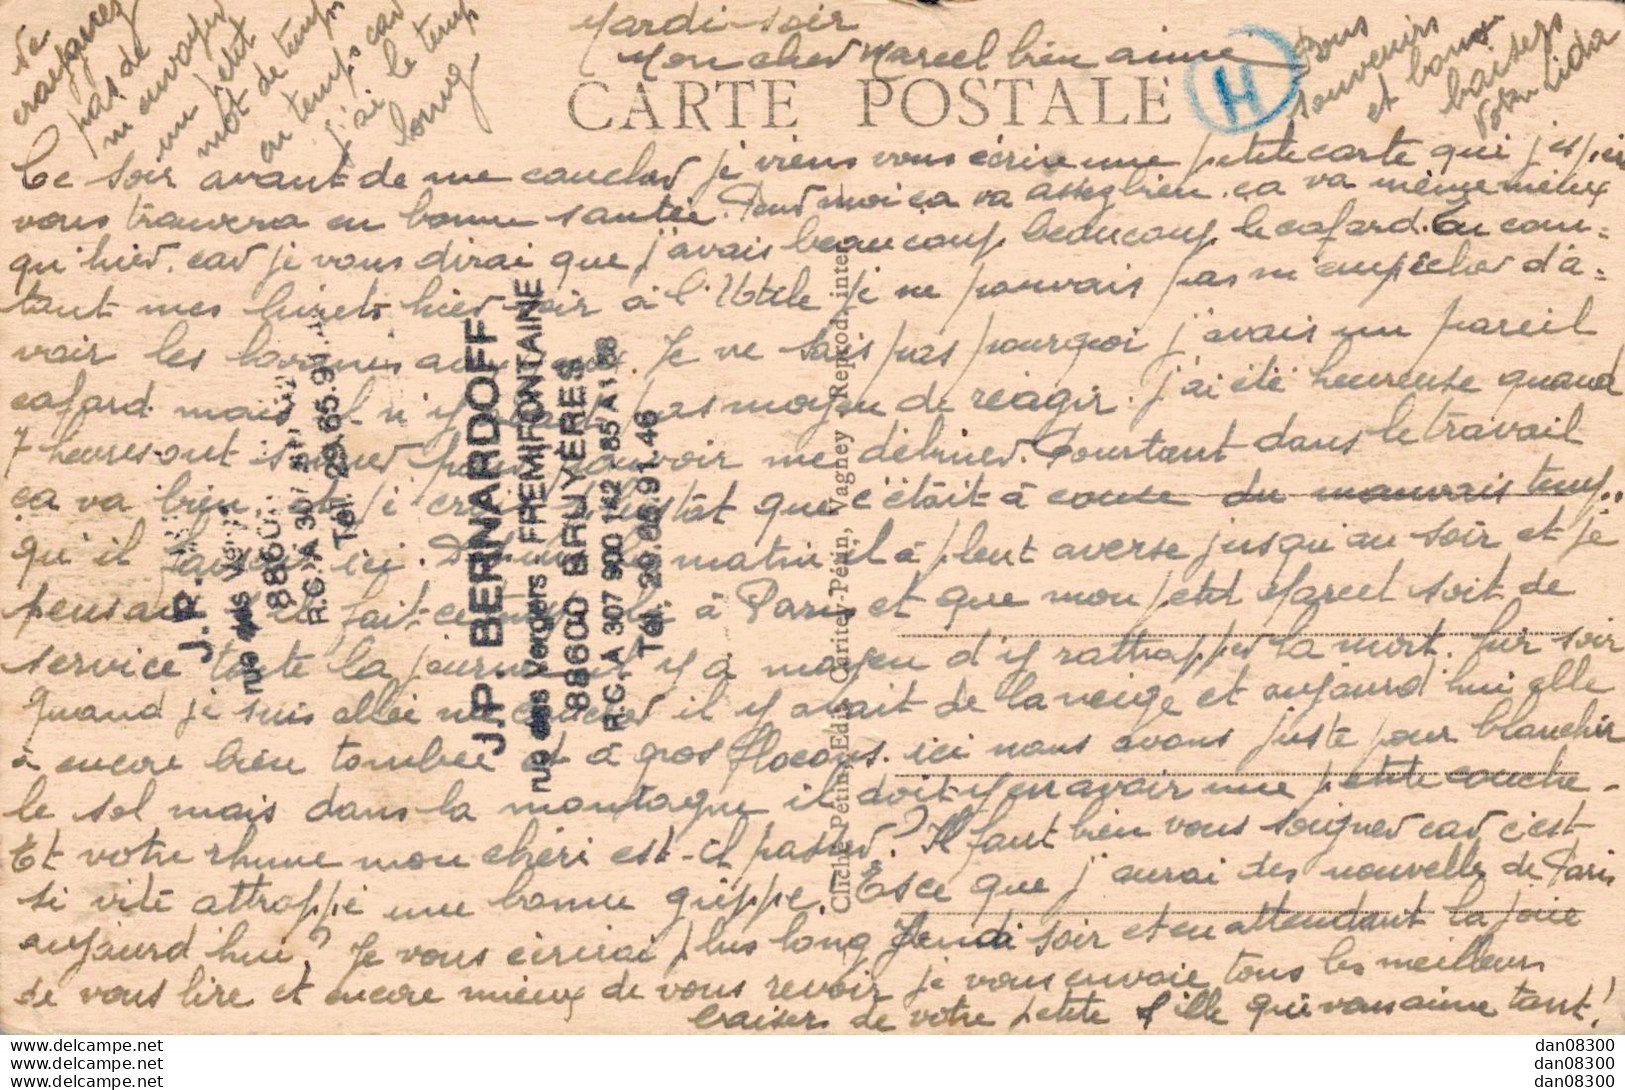 Mardi-soir
Mon cher Marcel bien aimé
CARTE POSTALE
H
Ce soir avant de me coucher je viens vous écrire une petite carte qui j'espère
vous trouvera en bonne santée. Pour moi ça va assez bien. ça va même mieux
qu'hier. car je vous dirai que j'avais beaucoup beaucoup le cafard. En com=
tant mes livrets hier soir à l'Utile je ne pouvais pas m'empêcher d'a=
voir les larmes aux yeux. Je ne sais pas pourquoi j'avais un pareil
cafard mais il n'y avait pas moyen de réagir. j'ai été heureuse quand
7 heures ont sonner pour pouvoir me débiner. Pourtant dans le travail
ça va bien, et je crois plustôt que c'était à cause du mauvais temp..
qu'il faisait ici. Depuis le matin il à pleut averse jusqu'au soir et je
pensais s'il fait ce temps là à Paris et que mon petit Marcel soit de
service toute la journée il y à moyen d'y rattrapper la mort. hir soir
Quand je suis allée me coucher il y avait de la neige et aujourd'hui elle
à encore bien tombée et à gros flocons. ici nous avons juste pour blanchir
le sol mais dans la montagne il doit y en avoir une petite couche.
Et votre rhume mon chéri est-il passer? Il faut bien vous soigner car c'est
si vite attrappé une bonne grippe. Esce que j'aurai des nouvelles de Paris
aujourd'hui? Je vous écrirai plus long Jeudi soir et en attendant la joie
de vous lire et encore mieux de vous revoir je vous envoie tous les meilleurs
baisers de votre petite fille qui vous aime tant!
Ne
craignez
pas de
m'envoyer
un petit
mot de temps
en temps car
j'ai le temps
long
Bons
souvenirs
et bons
baisers
Votre Lida
J.P. BERNARDOFF
rue des Vergers FREMIFONTAINE
88600 BRUYÈRES
R.C. A 307 900 142 85 A1 88
Tél. 29.65.91.46
J.P.
rue des Ver
88600
R.C. A 307
Tél. 29.65.91
Cliché Pétin, Edit. Caritey-Pétin, Vagney Reprod. inter
dan08300
dan08300
dan08300